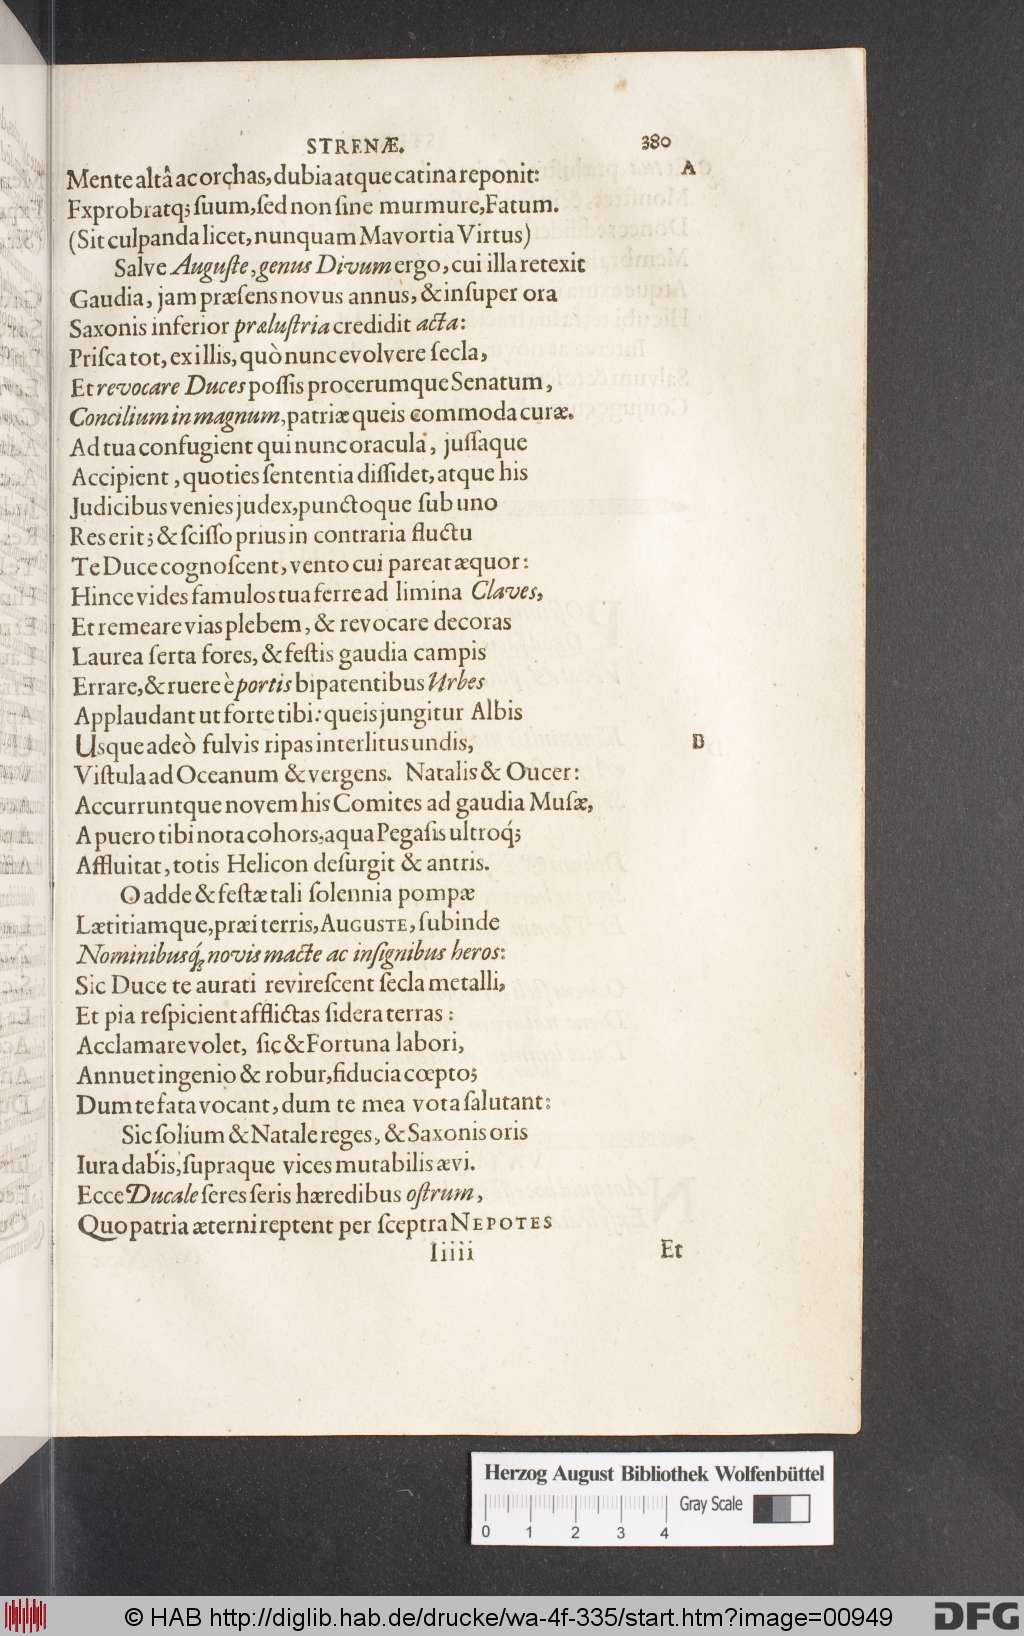 STRENÆ. 380
A
Mente altâ ac orchas, dubia atque catina reponit:
Fxprobratq; ſuum, ſed non ſine murmure, Fatum.
(Sit culpanda licet, nunquam Mavortia Virtus)
Salve Auguſte, genus Divum ergo, cui illa retexit
Gaudia, jam præſens novus annus, & inſuper ora
Saxonis inferior præluſtria credidit acta:
Priſca tot, ex illis, quò nunc evolvere ſecla,
Et revocare Duces poſſis procerumque Senatum,
Concilium in magnum, patriæ queis commoda curæ.
Ad tua confugient qui nunc oracula, juſſaque
Accipient, quoties ſententia diſſidet, atque his
Judicibus venies judex, punctoque ſub uno
Res erit; & ſciſſo prius in contraria fluctu
Te Duce cognoſcent, vento cui pareat æquor:
Hinc evides famulos tua ferre ad limina Claves,
Et remeare vias plebem, & revocare decoras
Laurea ſerta fores, & feſtis gaudia campis
Errare, & ruere è portis bipatentibus Urbes
Applaudant ut forte tibi: queis jungitur Albis
Usque adeò fulvis ripas interlitus undis,
B
Viſtula ad Oceanum & vergens. Natalis & Oucer:
Accurruntque novem his Comites ad gaudia Muſæ,
A puero tibi nota cohors, aqua Pegaſis ultroq́;
Affluitat, totis Helicon deſurgit & antris.
O adde & feſtæ tali ſolennia pompæ
Lætitiamque, præi terris, AUGUSTE, ſubinde
Nominibusq́; novis macte ac inſignibus heros:
Sic Duce te aurati revireſcent ſecla metalli,
Et pia reſpicient afflictas ſidera terras:
Acclamare volet, ſic & Fortuna labori,
Annuet ingenio & robur, fiducia cœpto;
Dum te fata vocant, dum te mea vota ſalutant:
Sic ſolium & Natale reges, & Saxonis oris
Iura dabis, ſupraque vices mutabilis ævi.
Ecce Ducale feres ſeris hæredibus oſtrum,
Quo patria æterni reptent per ſceptra NEPOTES
Iiiii Et
Herzog August Bibliothek Wolfenbüttel
Gray Scale
0 1 2 3 4
© HAB http://diglib.hab.de/drucke/wa-4f-335/start.htm?image=00949
DFG